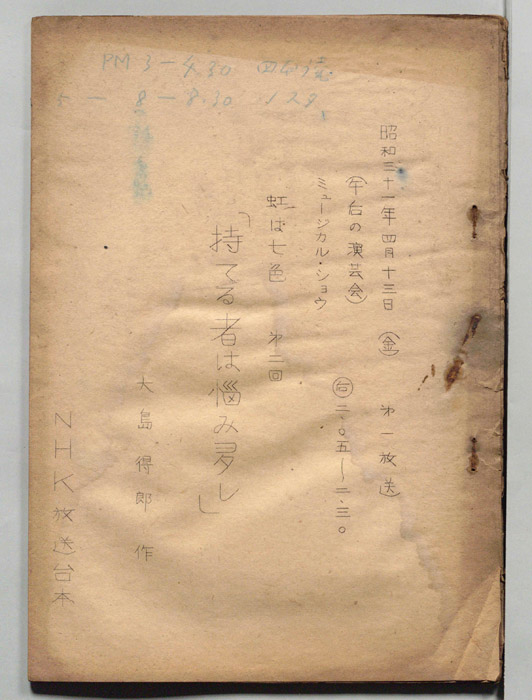 昭和三十一年四月十三日(金) 第一放送
(午后の演芸会) 后二・〇五〜二・三〇
ミュージカル・ショウ
虹は七色 第二回
「持てる者は悩み多し」
大島得郎 作
NHK放送台本
PM 3-4.30
5 - 8-8.30